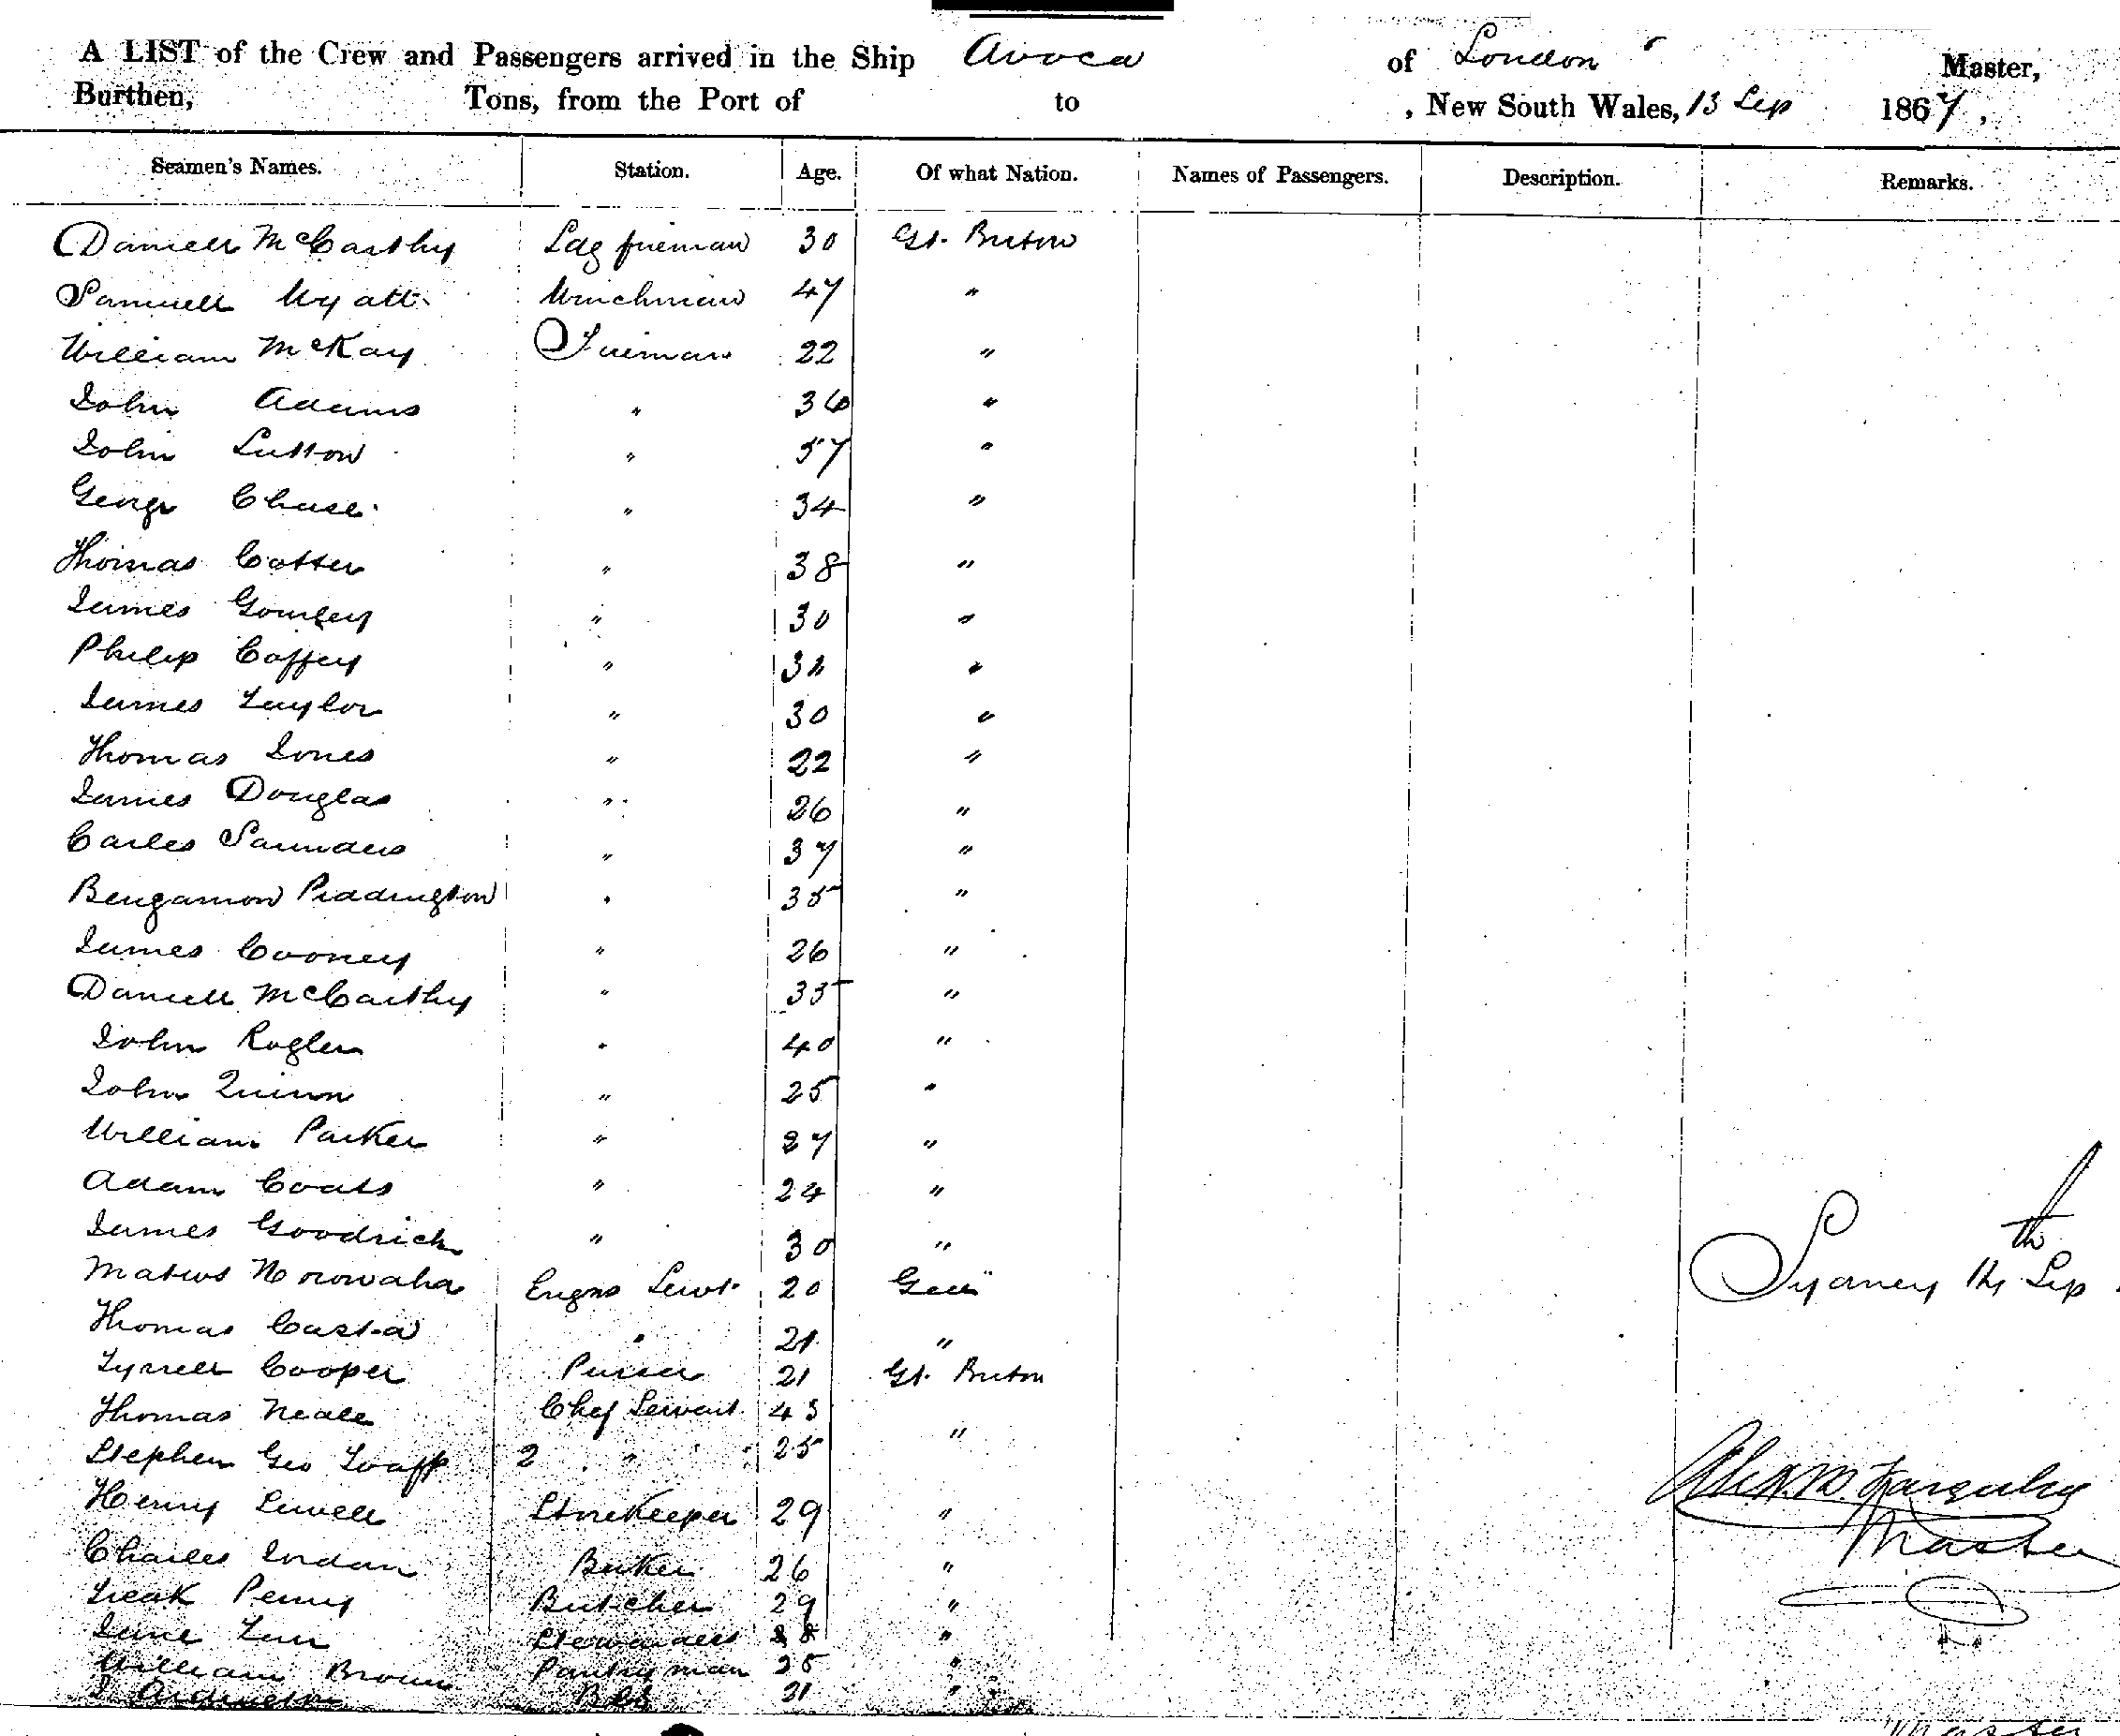 A LIST of the Crew and Passengers arrived in the Ship Avoca of London Master,
Burthen, Tons, from the Port of to , New South Wales, 13 Sep 1867,
Seamen's Names. Station. Age. Of what Nation. Names of Passengers. Description. Remarks.
Daniell McCarthy Ldg fireman 30 Gt. Briton
Samuell Wyatt Winchman 47 "
William McKay Fireman 22 "
John Adams " 36 "
John Sutton " 57 "
George Chase " 34 "
Thomas Cotter " 38 "
James Gourley " 30 "
Philip Caffery " 32 "
James Taylor " 30 "
Thomas Jones " 22 "
James Douglas " 26 "
Carles Saunders " 37 "
Bengamon Piddington " 35 "
James Cooney " 26 "
Daniell McCarthy " 35 "
John Rogler " 40 "
John Quinn " 25 "
William Parker " 27 "
Adam Coats " 24 "
James Goodrich " 30 "
Engrs Servt. 20
Thomas Casta " 21 "
Tyrrell Cooper Purser 21 Gt. Briton
Thomas Neale Chef Servant 43
Stephen Geo 2 " 25 "
Henry Sewell Storekeeper 29 "
Charles Jordan Baker 26 "
Penny Butcher 29 "
Jane Stewardess 28 "
William Brown Pantryman 25 "
31 "
Sydney 14th Sep
Master
Master